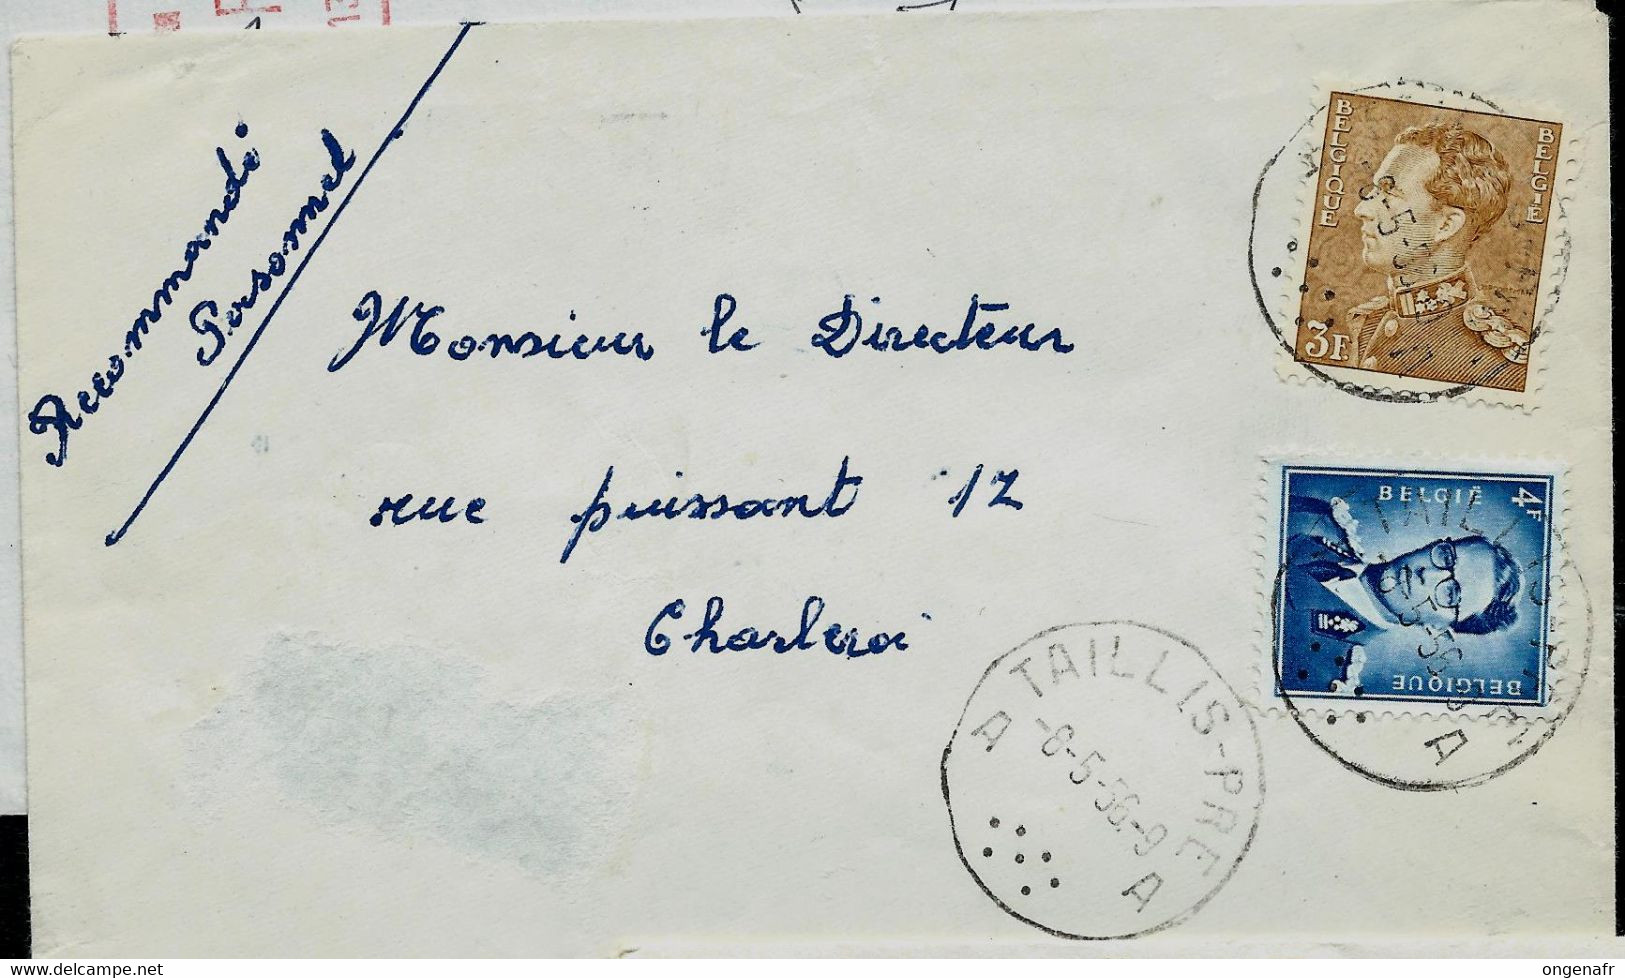 Recommandé
Personnel
Monsieur le Directeur
rue puissant 12
Charleroi
BELGIQUE
BELGIE
3F
BELGIË
4F
BELGIQUE
A TAILLIS-PRE A
-8-5-56.-9
TAILLIS-PRE A
delcampe.net
ongenafr